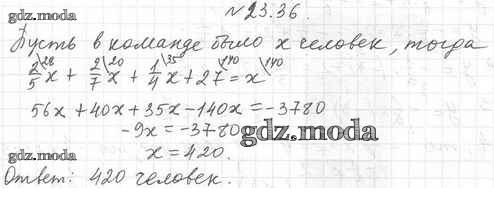 gdz.moda
№23.36.
Пусть в команде было x человек, тогда
2/5\28 x + 2/7\20 x + 1/4\35 x + 27\140 = x\140
56x + 40x + 35x - 140x = -3780
-9x = -3780
gdz.moda
x = 420.
gdz.moda
Ответ: 420 человек.